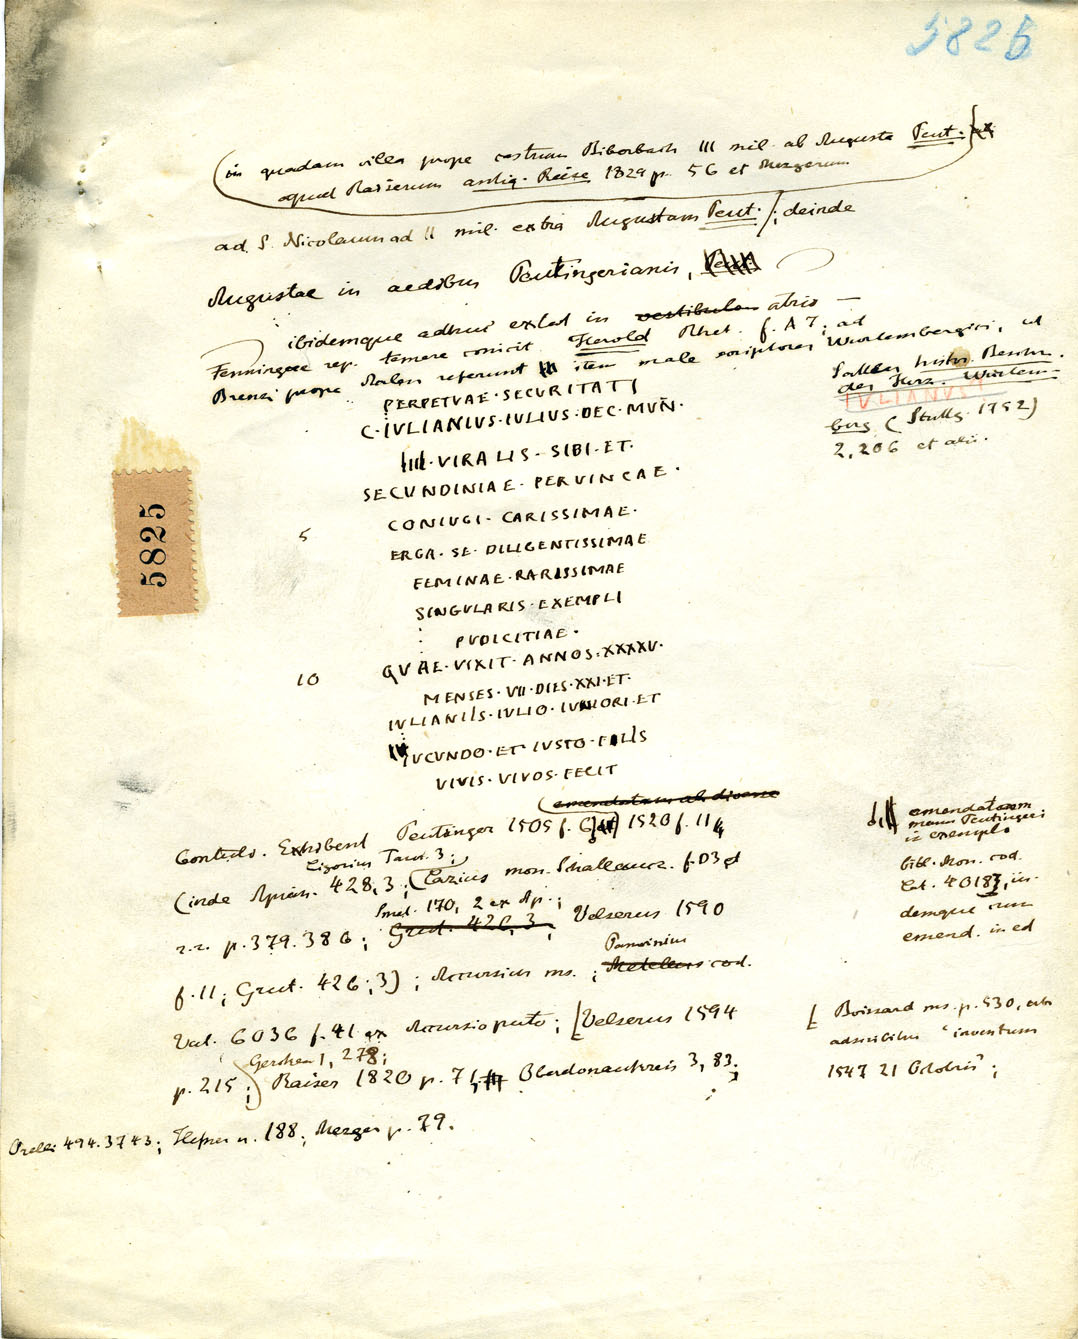 5825
(in quadam villa prope castrum Biberbach III mil. ab Augusta Peut.
apud Raiserum antiq. Reise 1829 p. 56 et Mezgerum
ad S. Nicolaum ad II mil. extra Augustam Peut.); deinde
Augustae in aedibus Peutingerianis,
ibidemque adhuc extat in vestibulo atrio —
Fenningae rep. temere conicit Herold Rhet. f. A 7; ad
Brenzi prope Aalen referunt item male scriptores Wurtembergici, ut
Sattler histor. Beschr.
des Herz. Würtem-
berg (Stuttg. 1752)
2, 206 et alii.
IULIANUS!
PERPETVAE · SECVRITATI
C · IVLIANIVS · IVLIVS · DEC · MVÑ ·
IIII · VIRALIS · SIBI · ET ·
SECVNDINIAE · PERVINCAE ·
CONIVGI · CARISSIMAE ·
5 ERGA · SE · DILIGENTISSIMAE
FEMINAE · RARISSIMAE
SINGVLARIS · EXEMPLI
PVDICITIAE ·
QVAE · VIXIT · ANNOS · XXXXV ·
10 MENSES · VII · DIES · XXI · ET ·
IVLIANIIS · IVLIO · IVNIORI · ET
IVCVNDO · ET · IVSTO · FILIS
VIVIS · VIVOS · FECIT
5825
(emendatum ab diverse
Contuli. Exhibent Peutinger 1505 f. 6 1520 f. 11
emendatorem
manu Peutingeri
in exemplo
bibl. Mon. cod.
lat. 4018, iis-
demque cum
emend. in ed
Ligorius Taur. 3;
(inde Apian. 428, 3; (Lazius mon. Schallaucz. f. D3 et
Smet. 170, 2 ex Ap.;
r. r. p. 379. 386; Grut. 426, 3; Velserus 1590
Panvinius
f. 11; Grut. 426, 3); Accursius ms.; Metellus cod.
Vat. 6036 f. 41 ex Accursio puto; [Velserus 1594
[Boissard ms. p. 530, ubi
adscribitur "inventum
1547 21 Octobris";
Gercken 1, 278;
p. 215; Raiser 1820 p. 71; Oberdonaukreis 3, 83;
Orelli 494. 3743; Hefner n. 188; Mezger p. 79.